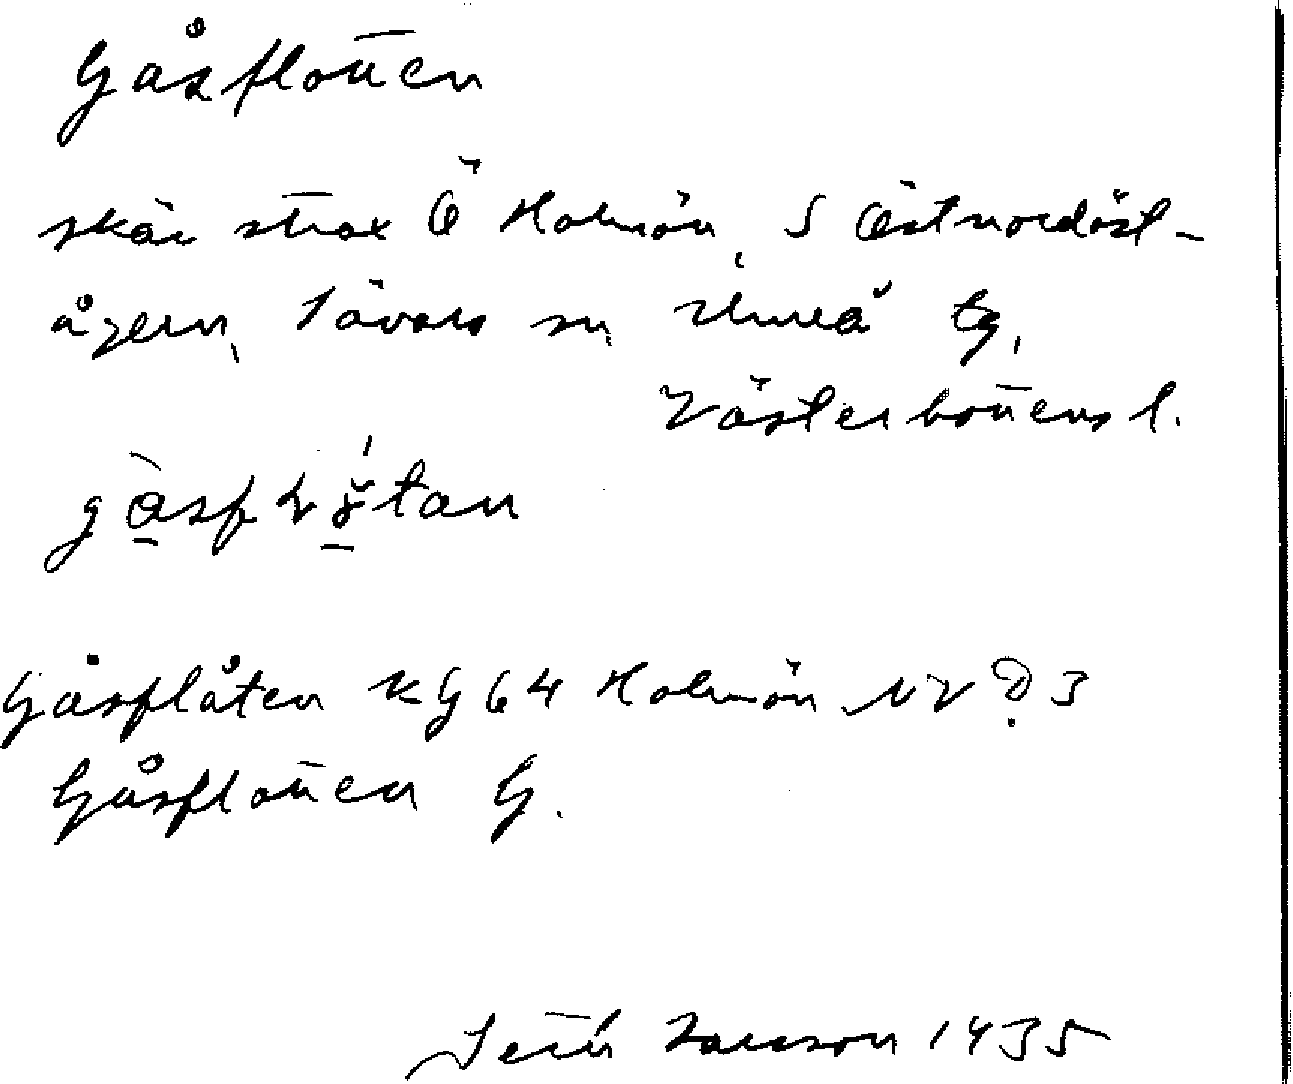 Gåsflotten
skär strax Ö Holmön, S Östnordöst-
ågern, Sävars sn, Umeå tg,
Västerbottens l.
Gåsflåten KG 64 Holmön NV D 3
Gåsflotten G.
Larsson 1935